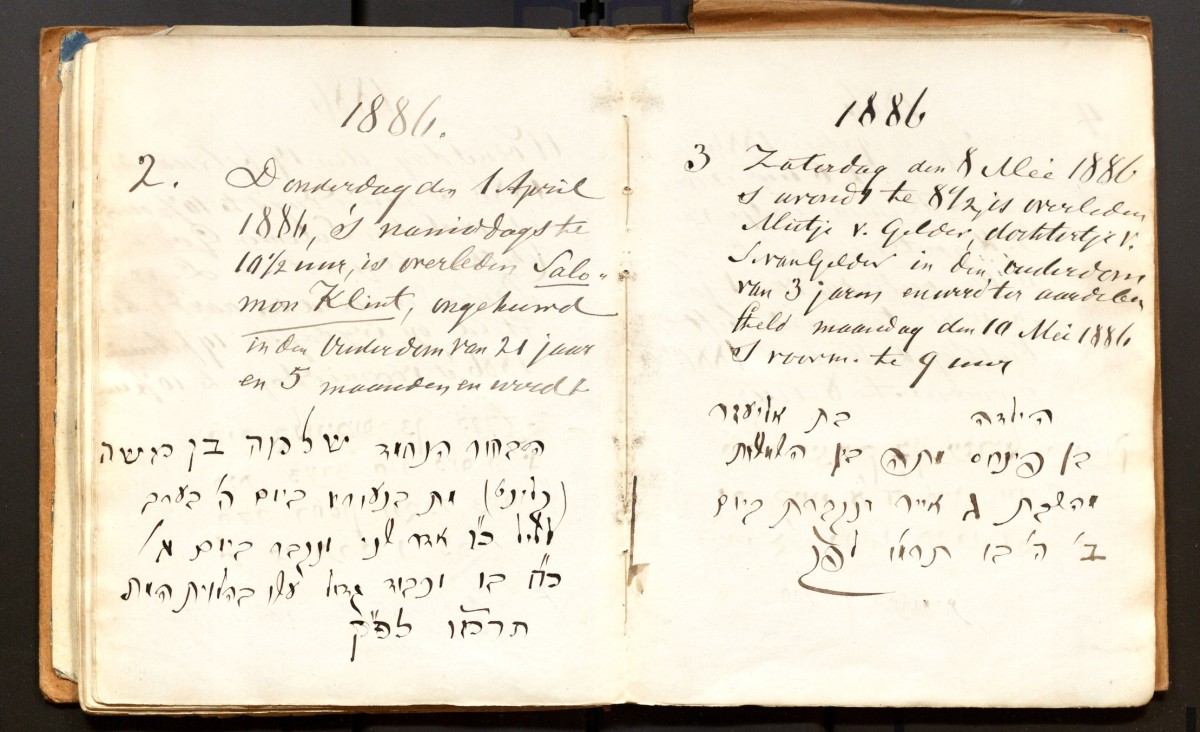 1886.
2. Donderdag den 1 April
1886, 's namiddags te
10 1/2 uur, is overleden Salo-
mon Klint, ongehuwd
in den Ouderdom van 21 jaar
en 5 maanden en wordt
הבחור הנחמד שלמה בן משה
(קלינט) מת בנעוריו ביום ה' בערב
ליל כ"ו אדר שני ונקבר ביום א'
כ"ח בו וכבוד גדול עשו בהלוית המת
תרמ"ו לפ"ק
1886
3 Zaterdag den 8 Mei 1886
's avonds te 8 1/2, is overleden
Mietje v. Gelder, dochtertje v.
S. van Gelder in den ouderdom
van 3 jaren en werd ter aarde be
steld maandag den 10 Mei 1886
's voorm. te 9 uur
הילדה בת אליעזר
בן פינחס מתה בין השמשות
מהשבת ג אייר ונקברת ביום
ב' ה' בו תרמ"ו לפק